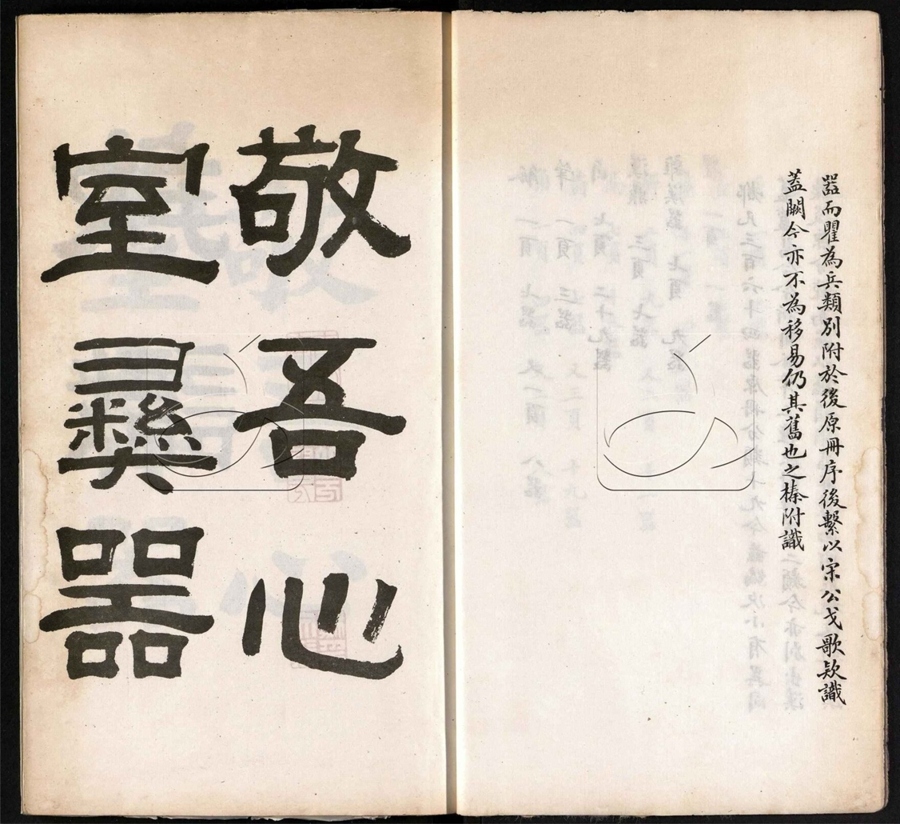 器而瞿為兵類別附於後原冊序後繫以宋公戈歌欵識
蓋闕今亦不為移易仍其舊也之榛附識
敬吾心
室彝器